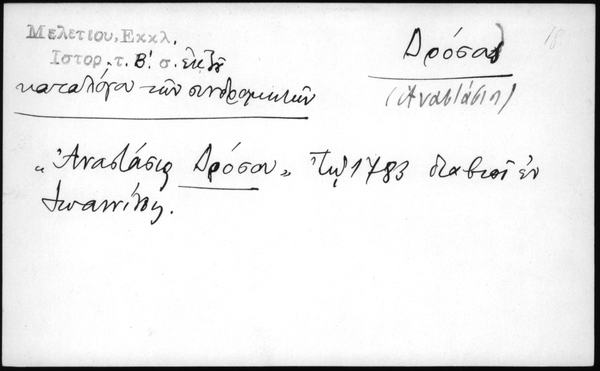 Μελετίου, Εκκλ.
Ιστορ. τ. Β! σ. ἐκ τῶ
καταλόγου τῶν συνδρομητῶν
Δρόσος
(Ἀναστάσιος)
18.
„Ἀναστάσιος Δρόσου„ Τῷ 1783 διαβιοῖ ἐν
Ἰωαννίνοις.